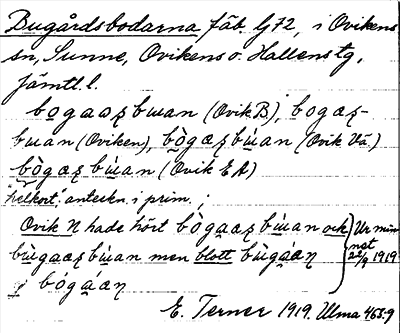 Bugårdsbodarna fäb. lj 72, i Ovikens
sn, Sunne, Oviken o. Hallens tg,
Jämtl. l.
bogaaʂbɯan (Ovik B), bogaʂ-
bɯan (Oviken), bògaʂbɯ́an (Ovik Vä.)
bògaʂbɯ́an (Ovik E A)
"helkort" anteckn. i prim. ;
Ovik N hade hört bògaaʂbɯ́an och
bùgaaʂbɯ́an men blott bùgáaɳ
i bógáaɳ
Ur min
not
22/9 1919
E. Terner 1919. Ulma 468:9